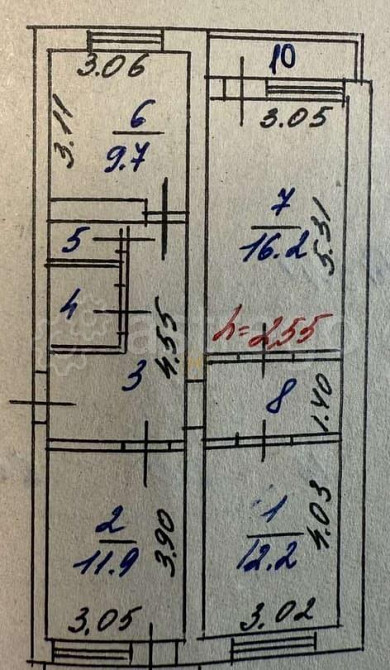 3.06
10
3.11
6
9.7
3.05
7
16.2
5.31
5
4
4.55
h=2,55
3
8
1.40
2
11.9
3.90
1
12.2
4.03
3.05
3.02